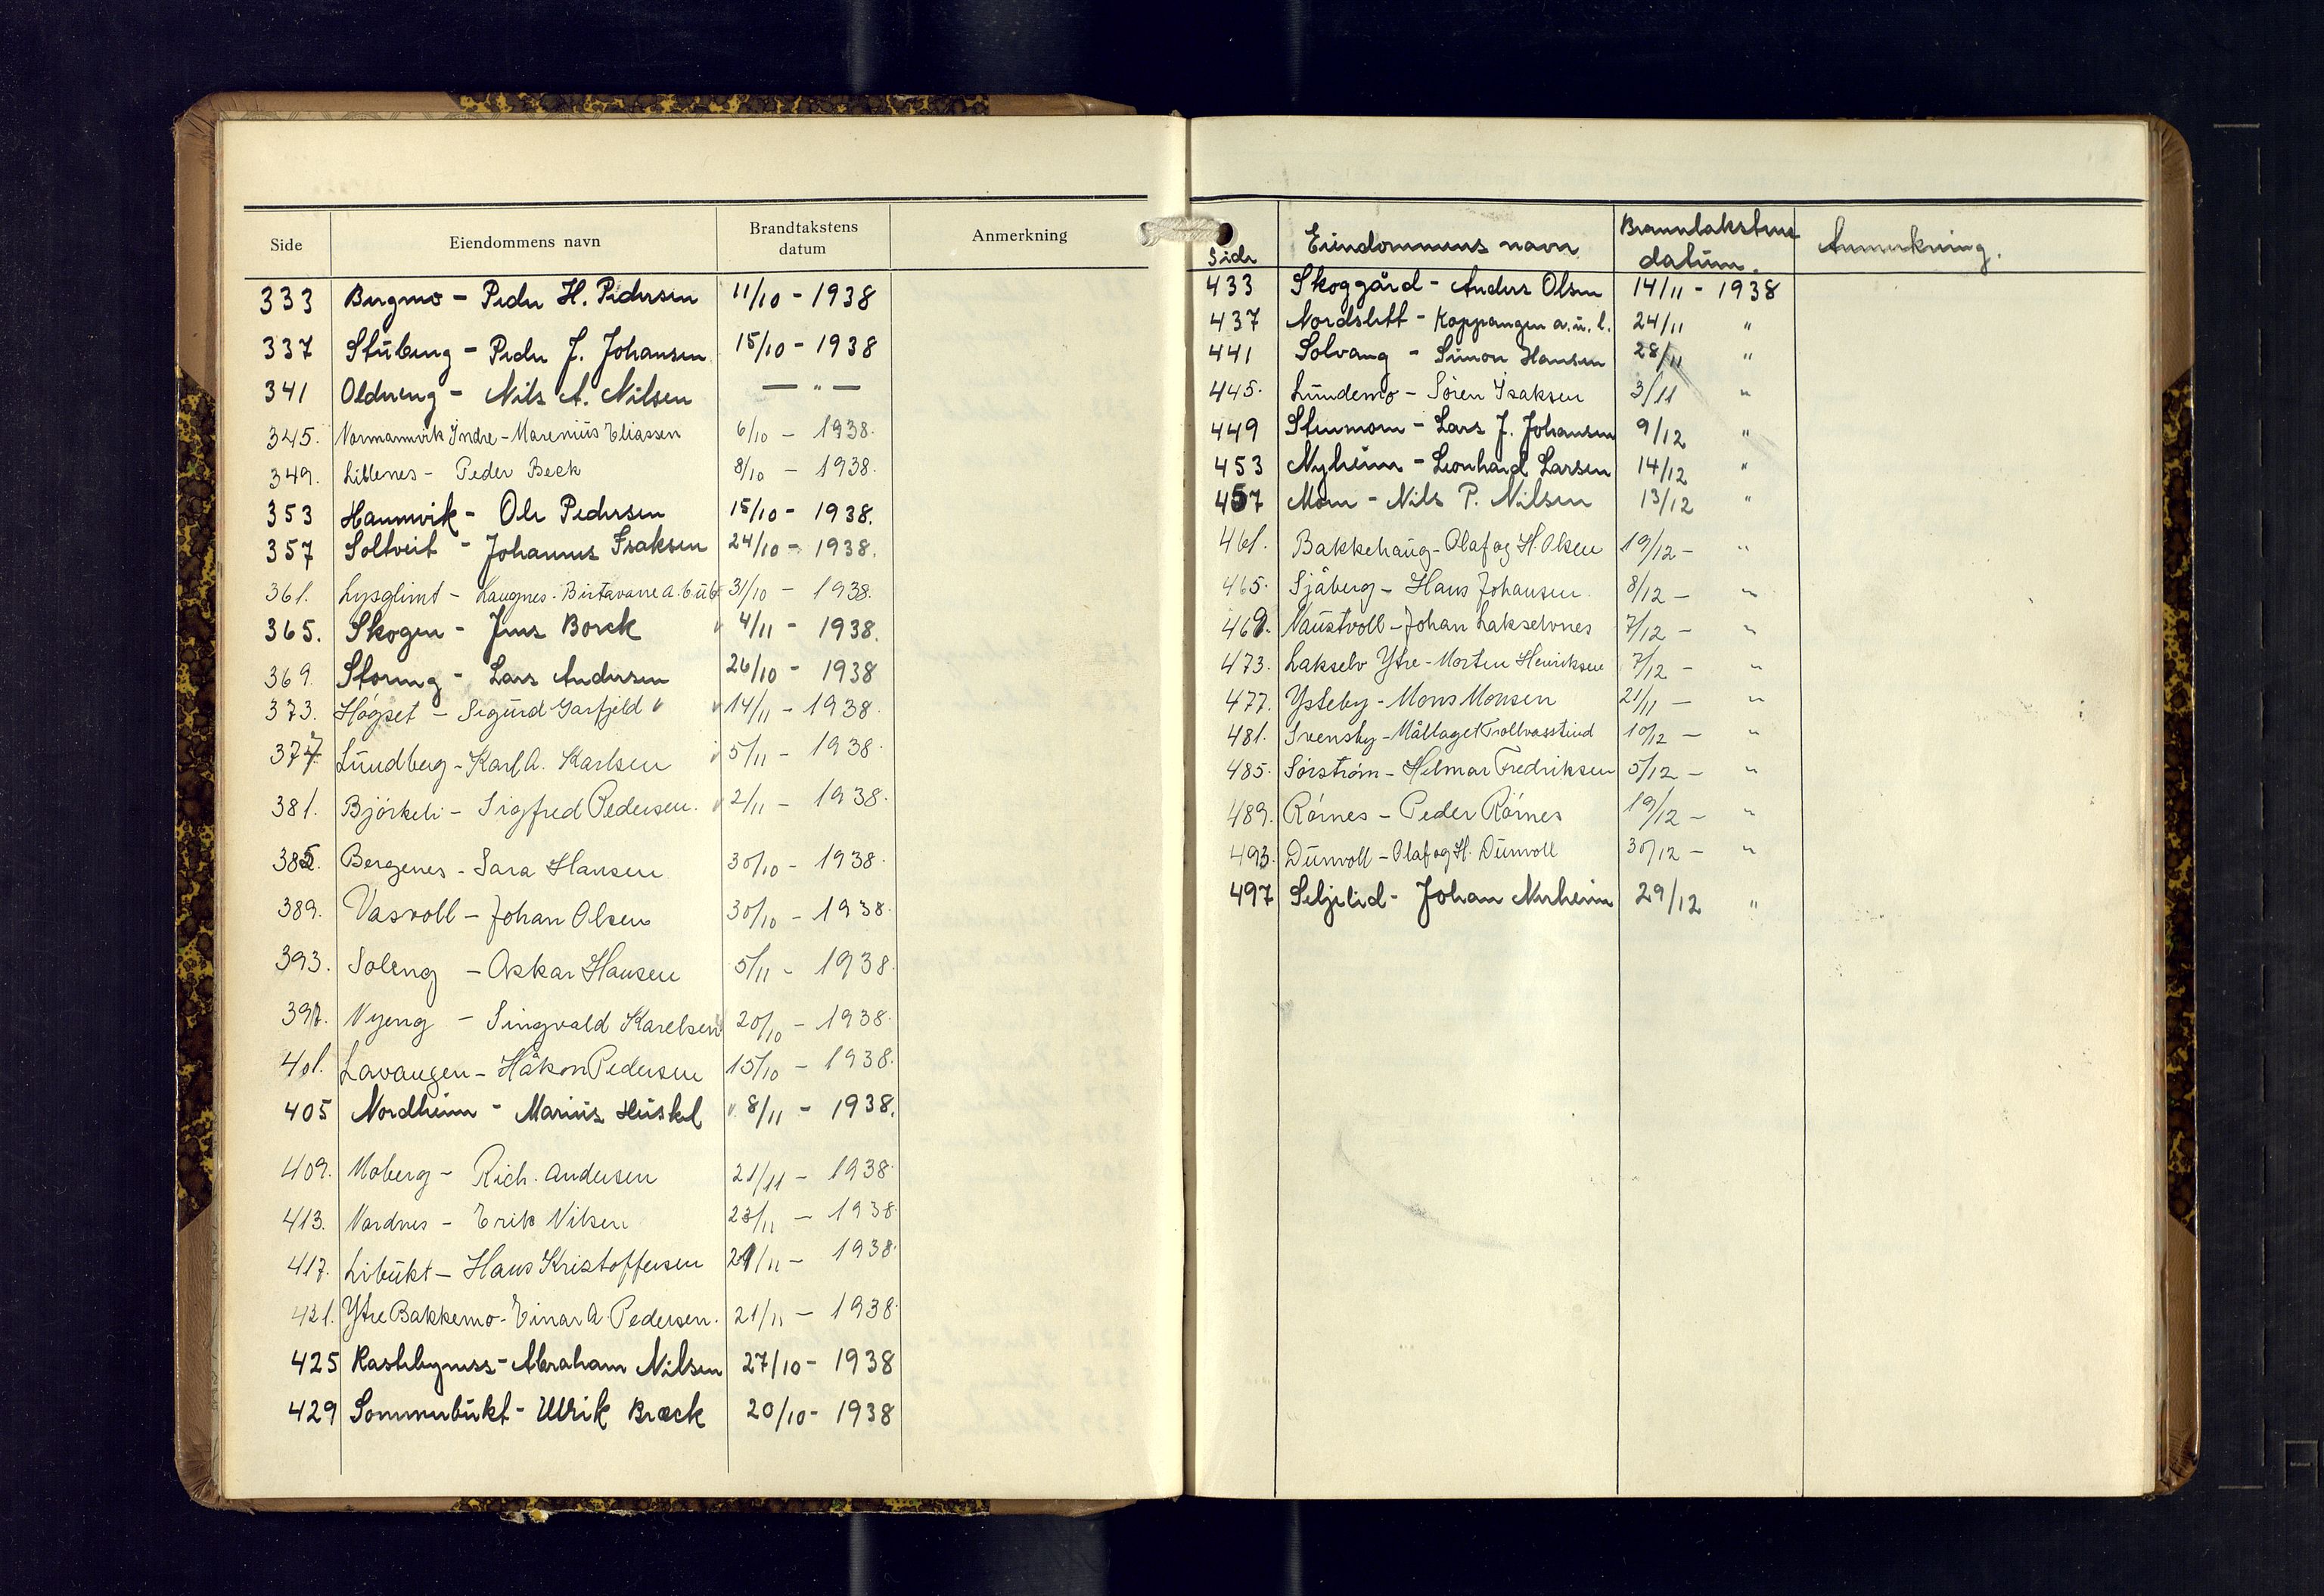 Side Eiendommens navn Brandtakstens datum Anmerkning
333 Bergmo - Peder H. Pedersen 11/10 - 1938
337 Stubeng - Peder J. Johansen 15/10 - 1938
341 Oldreng - Nils A. Nilsen — " —
345. Normannvik Indre - Marenius Eliassen 6/10 - 1938.
349. Lillenes - Peder Beck 8/10 - 1938.
353 Hamnvik - Ole Pedersen 15/10 - 1938.
357 Soltveit - Johannes Isaksen 24/10 - 1938.
361. Lysglimt - Langnes - Birtavarre 31/10 - 1938.
365. Skogen - Jens Borck 4/11 - 1938.
369. Storeng - Lars Andersen 26/10 - 1938
373. Högset - Sigurd Garfjeld 14/11 - 1938.
377 Lundberg - Karl A. Karlsen 5/11 - 1938.
381. Björkeli - Sigfred Pedersen. 2/11 - 1938.
385. Bergenes - Sara Hansen 30/10 - 1938.
389. Vasvoll - Johan Olsen 30/10 - 1938.
393. Soleng - Oskar Hansen 5/11 - 1938.
397. Nyeng - Singvald Karelsen 20/10 - 1938.
401. Lavangen - Håkon Pedersen 15/10 - 1938.
405 Nordheim - Marius Heiskel 8/11 - 1938.
409. Moberg - Rich. Andersen 21/11 - 1938.
413. Nordnes - Erik Nilsen 23/11 - 1938.
417. Libukt - Hans Kristoffersen 11 - 1938.
421. Ytre Bakkemo - Einar A. Pedersen. 21/11 - 1938.
425 Abraham Nilsen 27/10 - 1938
429 Sommerbukt - Ulrik Bræck 20/10 - 1938
Side Eiendommens navn Branntakstens datum. Anmerkning.
433 Skoggård - Anders Olsen 14/11 - 1938
437 Nordslett - Koppangen a.u.l. 24/11 "
441 Solvang - Simon Hansen 28/11 "
445. Lundemo - Sören Isaksen 3/11 "
449 Stenmoen - Lars J. Johansen 9/12 "
453 Nyheim - Leonhard Larsen 14/12 "
457 Moen - Nils P. Nilsen 13/12 "
461. Bakkehaug - Olaf og H. Olsen 19/12 - "
465. Sjåberg - Hans Johansen. 8/12 - "
469. Naustvoll - Johan Lakselvnes 7/12 - "
473. Lakselv Ytre - Morten Henriksen 7/12 - "
477. Ysteby - Mons Monsen 21/11 - "
481. Svensby - Mållaget Trollvasstind 10/12 - "
485. Sörström - Helmar Fredriksen 5/12 - "
489. Rörnes - Peder Rörnes 19/12 - "
493. Dunvoll - Olaf og H. Dunvoll 30/12 - "
497 Seljelid - Johan Nerheim 29/12 "